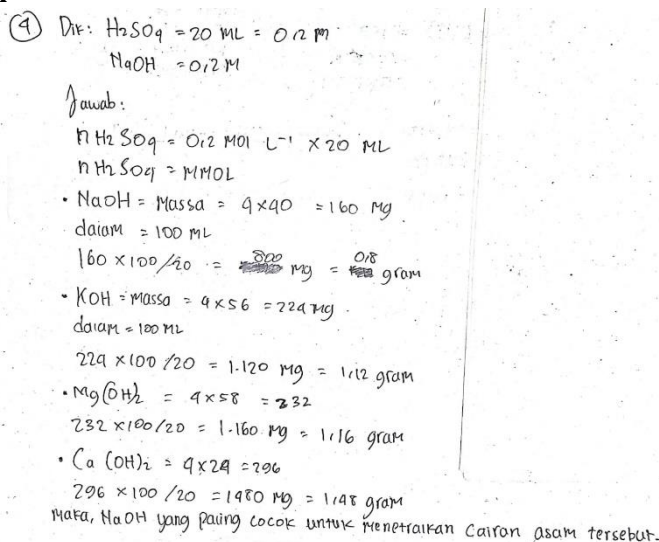 ④ Dik: H2SO4 = 20 ML = 0,2 M
NaOH = 0,2 M
Jawab:
n H2 SO4 = 0,2 MOl L-¹ x 20 ML
n H2 SO4 = MMOL
• NaOH = Massa = 4x40 = 160 Mg
dalam = 100 ML
160 x 100/20 = 800 mg = 0,8 gram
• KOH = Massa = 4x56 = 224 mg.
dalam = 100 ML
224 x 100 /20 = 1.120 Mg = 1,12 gram
• Mg(OH)2 = 4x58 = 232
232 x 100/20 = 1.160 Mg = 1,16 gram
• Ca (OH)2 = 4x24 = 296
296 x 100 /20 = 1480 Mg = 1,48 gram
Maka, NaOH yang paling cocok untuk Menetralkan Cairan asam tersebut.